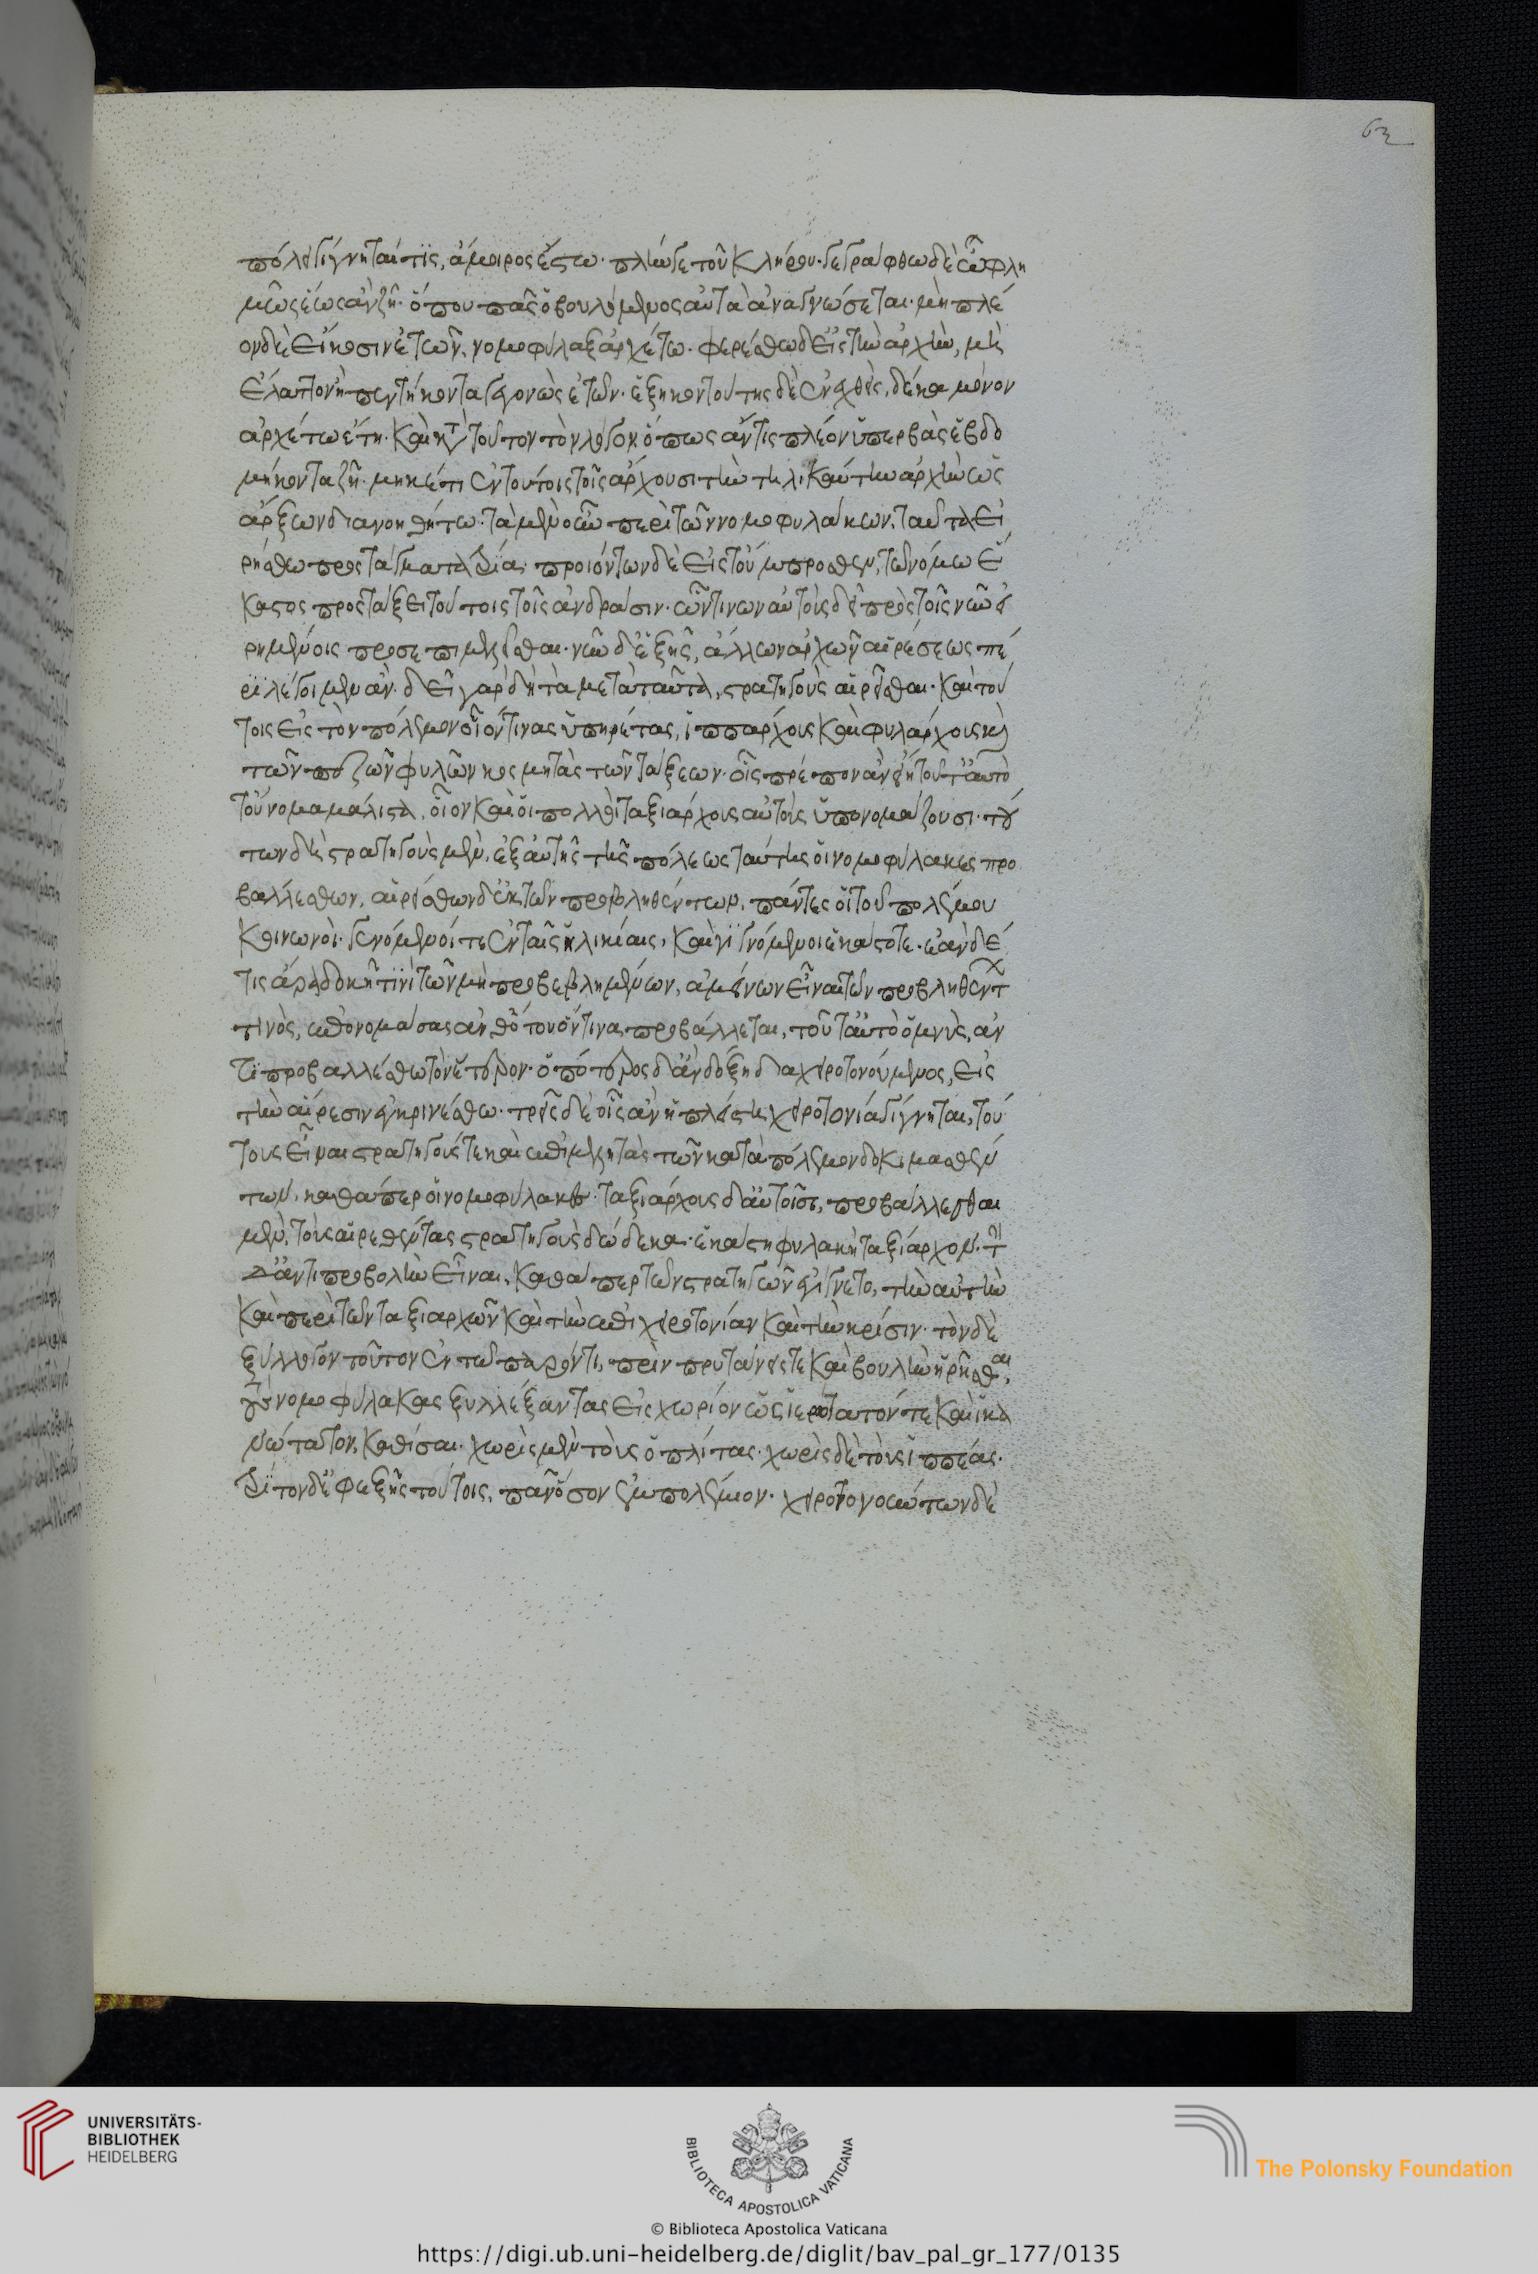 πόλει γίγνηταί τις, ἄμοιρος ἔστω· πλὴν γε τοῦ κλήρου· γεγράφθω δὲ ὠφλη
μένως ἕως ἂν ζῇ· ὅπου πᾶς ὁ βουλόμενος αὐτὰ ἀναγνώσεται· μὴ πλέ
ον δὲ εἴκοσιν ἐτῶν, νομοφύλαξ ἀρχέτω· φερέσθω δ' εἰς τὴν ἀρχὴν, μὴ
ἔλαττον ἢ πεντήκοντα γεγονὼς ἐτῶν· ἑξηκοντούτης δὲ ἐνεχθεὶς, δέκα μόνον
ἀρχέτω ἔτη· καὶ κατὰ τοῦτον τὸν λόγον ὅπως ἄν τις πλέον ὑπερβὰς ἑβδο
μήκοντα ζῇ· μηκέτι ἐν τούτοις τοῖς ἄρχουσι τὴν τηλικαύτην ἀρχὴν ὡς
ἄρξων διανοηθήτω· τὰ μὲν οὖν περὶ τῶν νομοφυλάκων, ταῦτα εἰ
ρήσθω προστάγματα τρία· προιόντων δὲ εἰς τοὔμπροσθεν, τῶν νόμων ἕ
καστος προστάξει τούτοις τοῖς ἀνδράσιν· ὧντινων αὐτοὺς δεῖ πρὸς τοῖς νῦν εἰ
ρημένοις προσεπιμελεῖσθαι· νῦν δ' ἑξῆς, ἄλλων ἀρχῶν αἱρέσεως πέ
ρι λέγοιμεν ἄν· δεῖ γὰρ δὴ τὰ μετὰ ταῦτα, στρατηγοὺς αἱρεῖσθαι· καὶ τού
τοις εἰς τὸν πόλεμον οἷόν τινας ὑπηρέτας, ἱππάρχους καὶ φυλάρχους καὶ
τῶν πεζῶν φυλῶν κοσμητὰς τῶν τάξεων· οἷς πρέπον ἂν εἴη τοῦτ' αὐτὸ
τοὔνομα μάλιστα, οἷον καὶ οἱ πολλοὶ ταξιάρχους αὐτοὺς ὑπονομάζουσι· τού
των δὲ στρατηγοὺς μὲν, ἐξ αὐτῆς τῆς πόλεως ταύτης οἱ νομοφύλακες προ
βαλλέσθων, αἱρείσθων δ' ἐκ τῶν προβληθέντων, πάντες οἱ τοῦ πολέμου
κοινωνοὶ· γενόμενοί τε ἐν ταῖς ἡλικίαις, καὶ γιγνόμενοι ἑκάστοτε· ἐὰν δέ
τις ἄρα δοκῇ τινὶ τῶν μὴ προβεβλημένων, ἀμείνων εἶναι τῶν προβληθέντων
τινὸς, ἐπονομάσας ἀνθ' ὅτου ὅντινα προβάλλεται, τοῦτ' αὐτὸ ὀμνὺς, ἀν
τιπροβαλλέσθω τὸν ἕτερον· ὁπότερος δ' ἂν δόξῃ διαχειροτονούμενος, εἰς
τὴν αἵρεσιν ἐγκρινέσθω· τρεῖς δὲ οἷς ἂν ἡ πλείστη χειροτονία γίγνηται, τού
τους εἶναι στρατηγούς τε καὶ ἐπιμελητὰς τῶν κατὰ πόλεμον δοκιμασθέν
των, καθάπερ οἱ νομοφύλακες· ταξιάρχους δ' αὐτοῖσι, προβάλλεσθαι
μὲν, τοὺς αἱρεθέντας στρατηγοὺς δώδεκα· ἑκάστη φυλακῇ ταξίαρχον· τὴν
δ' ἀντιπροβολὴν εἶναι, καθάπερ τῶν στρατηγῶν ἐγίγνετο, τὴν αὐτὴν
καὶ περὶ τῶν ταξιαρχῶν καὶ τὴν ἐπιχειροτονίαν καὶ τὴν κρίσιν· τὸν δὲ
ξύλλογον τοῦτον ἐν τῷ παρόντι, πρὶν πρυτάνεις τε καὶ βουλὴν ᾑρῆσθαι,
τοὺς νομοφύλακας ξυλλέξαντας εἰς χωρίον ὡς ἱερώτατόν τε καὶ ἱκα
νώτατον, καθίσαι· χωρὶς μὲν τοὺς ὁπλίτας· χωρὶς δὲ τοὺς ἱππέας·
τρίτον δ' ἐφεξῆς τούτοις, πᾶν ὅσον ἐμπολέμιον· χειροτονούντων δὲ
UNIVERSITÄTS-
BIBLIOTHEK
HEIDELBERG
BIBLIOTECA APOSTOLICA VATICANA
The Polonsky Foundation
© Biblioteca Apostolica Vaticana
https://digi.ub.uni-heidelberg.de/diglit/bav_pal_gr_177/0135